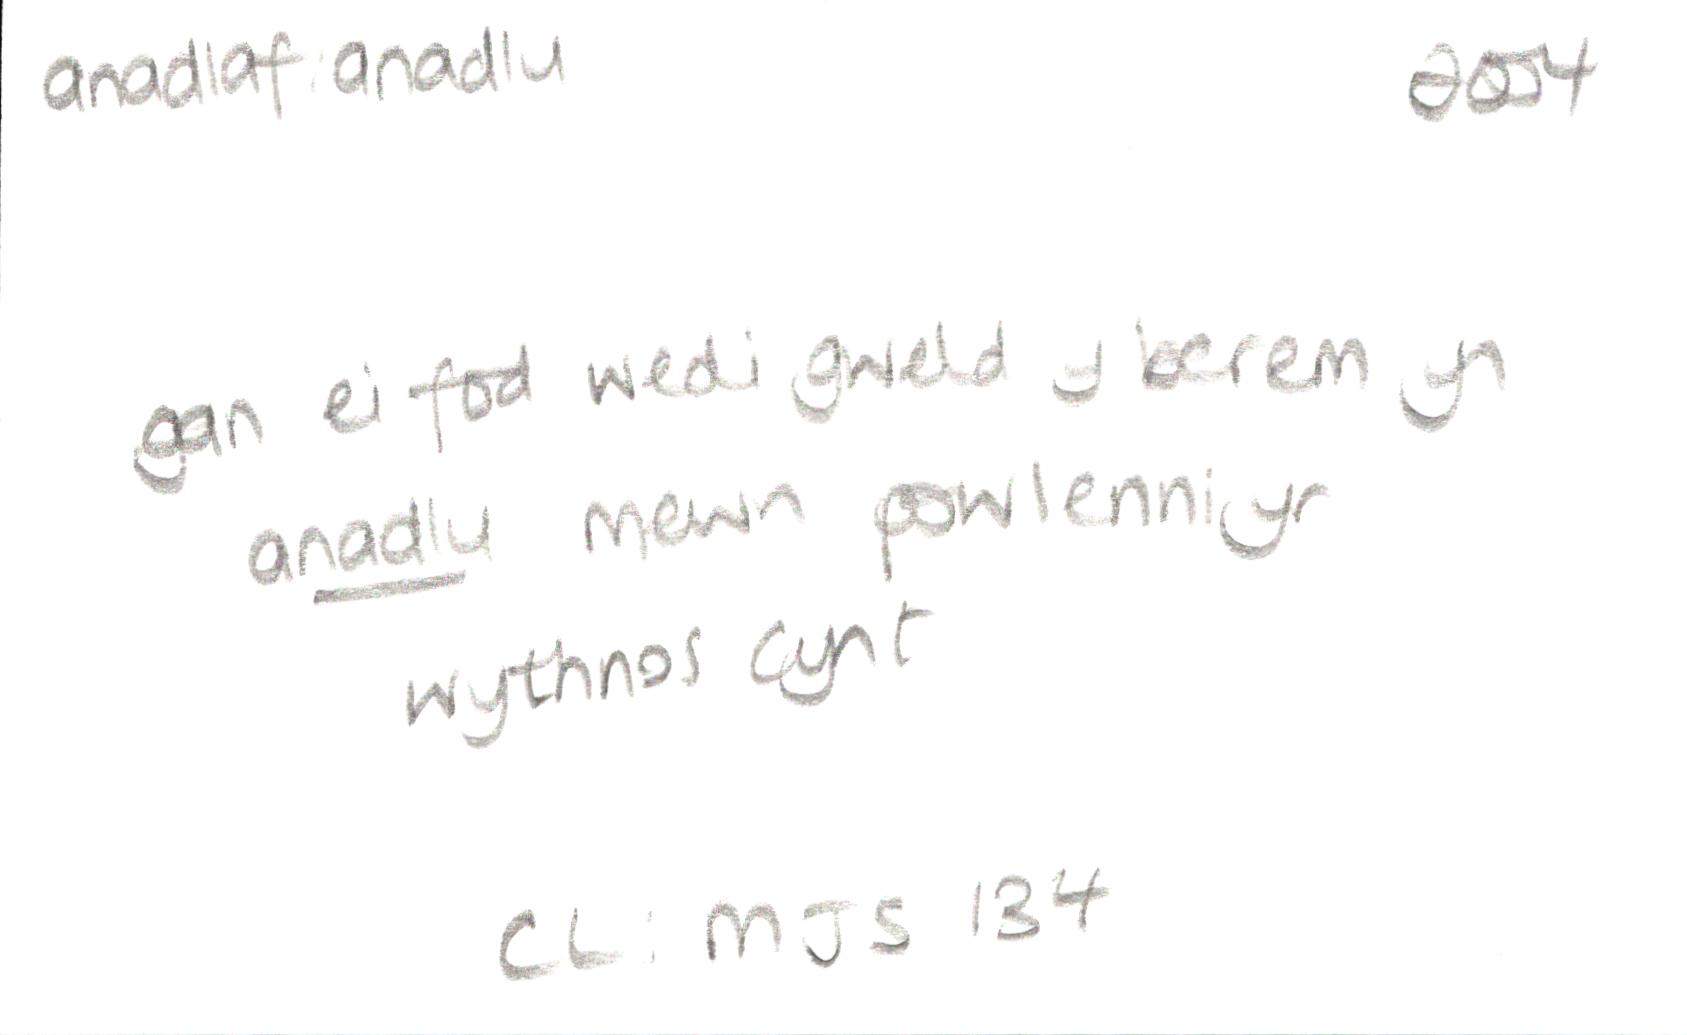 anadlaf: anadlu 2004
gan ei fod wedi gweld y berem yn
anadlu mewn powlenni yr
wythnos cynt
CL: MJS 134